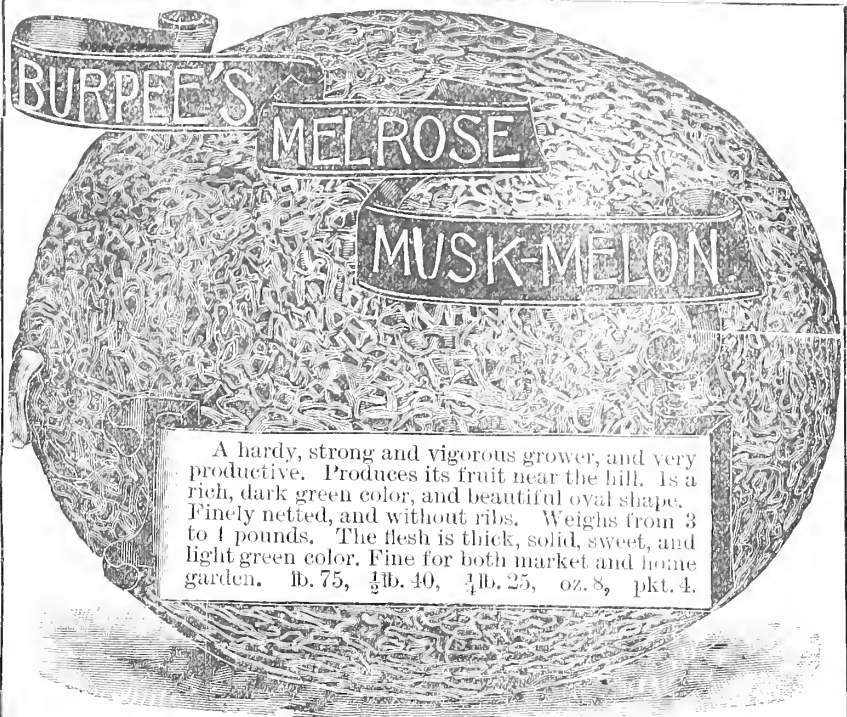 BURPEE'S
MELROSE
MUSK-MELON.
A hardy, strong and vigorous grower, and very
productive. Produces its fruit near the hill. Is a
rich, dark green color, and beautiful oval shape.
Finely netted, and without ribs. Weighs from 3
to 4 pounds. The flesh is thick, solid, sweet, and
light green color. Fine for both market and home
garden. lb. 75, ½lb. 40, ¼lb. 25, oz. 8, pkt. 4.